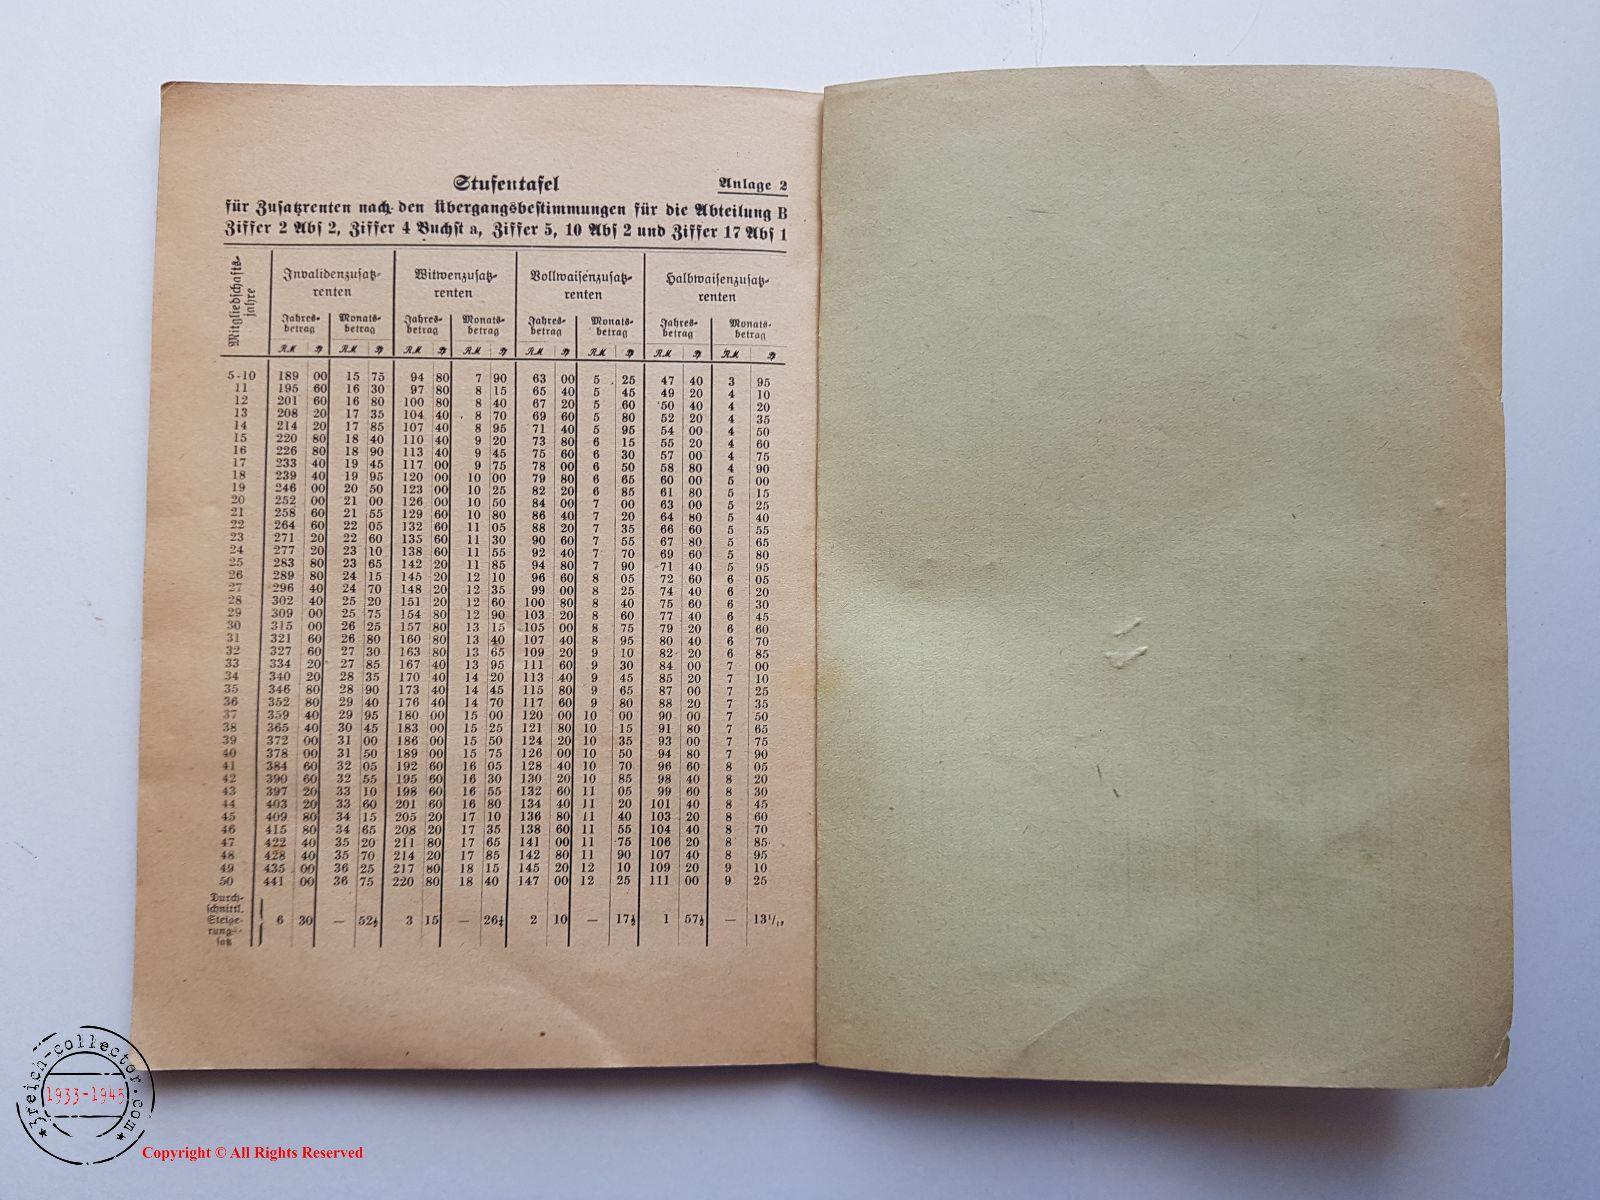 Stufentafel
Anlage 2
für Zusatzrenten nach den Übergangsbestimmungen für die Abteilung B
Ziffer 2 Abs 2, Ziffer 4 Buchst a, Ziffer 5, 10 Abs 2 und Ziffer 17 Abs 1
Mitgliedschafts-
jahre
Invalidenzusatz- Witwenzusatz- Vollwaisenzusatz- Halbwaisenzusatz-
renten renten renten renten
Jahres- Monats- Jahres- Monats- Jahres- Monats- Jahres- Monats-
betrag betrag betrag betrag betrag betrag betrag betrag
RM RM RM RM RM RM RM RM
5-10 189 00 15 75 94 80 7 90 63 00 5 25 47 40 3 95
11 195 60 16 30 97 80 8 15 65 40 5 45 49 20 4 10
12 201 60 16 80 100 80 8 40 67 20 5 60 50 40 4 20
13 208 20 17 35 104 40 8 70 69 60 5 80 52 20 4 35
14 214 20 17 85 107 40 8 95 71 40 5 95 54 00 4 50
15 220 80 18 40 110 40 9 20 73 80 6 15 55 20 4 60
16 226 80 18 90 113 40 9 45 75 60 6 30 57 00 4 75
17 233 40 19 45 117 00 9 75 78 00 6 50 58 80 4 90
18 239 40 19 95 120 00 10 00 79 80 6 65 60 00 5 00
19 246 00 20 50 123 00 10 25 82 20 6 85 61 80 5 15
20 252 00 21 00 126 00 10 50 84 00 7 00 63 00 5 25
21 258 60 21 55 129 60 10 80 86 40 7 20 64 80 5 40
22 264 60 22 05 132 60 11 05 88 20 7 35 66 60 5 55
23 271 20 22 60 135 60 11 30 90 60 7 55 67 80 5 65
24 277 20 23 10 138 60 11 55 92 40 7 70 69 60 5 80
25 283 80 23 65 142 20 11 85 94 80 7 90 71 40 5 95
26 289 80 24 15 145 20 12 10 96 60 8 05 72 60 6 05
27 296 40 24 70 148 20 12 35 99 00 8 25 74 40 6 20
28 302 40 25 20 151 20 12 60 100 80 8 40 75 60 6 30
29 309 00 25 75 154 80 12 90 103 20 8 60 77 40 6 45
30 315 00 26 25 157 80 13 15 105 00 8 75 79 20 6 60
31 321 60 26 80 160 80 13 40 107 40 8 95 80 40 6 70
32 327 60 27 30 163 80 13 65 109 20 9 10 82 20 6 85
33 334 20 27 85 167 40 13 95 111 60 9 30 84 00 7 00
34 340 20 28 35 170 40 14 20 113 40 9 45 85 20 7 10
35 346 80 28 90 173 40 14 45 115 80 9 65 87 00 7 25
36 352 80 29 40 176 40 14 70 117 60 9 80 88 20 7 35
37 359 40 29 95 180 00 15 00 120 00 10 00 90 00 7 50
38 365 40 30 45 183 00 15 25 121 80 10 15 91 80 7 65
39 372 00 31 00 186 00 15 50 124 20 10 35 93 00 7 75
40 378 00 31 50 189 00 15 75 126 00 10 50 94 80 7 90
41 384 60 32 05 192 60 16 05 128 40 10 70 96 60 8 05
42 390 60 32 55 195 60 16 30 130 20 10 85 98 40 8 20
43 397 20 33 10 198 60 16 55 132 60 11 05 99 60 8 30
44 403 20 33 60 201 60 16 80 134 40 11 20 101 40 8 45
45 409 80 34 15 205 20 17 10 136 80 11 40 103 20 8 60
46 415 80 34 65 208 20 17 35 138 60 11 55 104 40 8 70
47 422 40 35 20 211 80 17 65 141 00 11 75 106 20 8 85
48 428 40 35 70 214 20 17 85 142 80 11 90 107 40 8 95
49 435 00 36 25 217 80 18 15 145 20 12 10 109 20 9 10
50 441 00 36 75 220 80 18 40 147 00 12 25 111 00 9 25
Durch-
schnittl.
Steige-
rungs-
satz
6 30 — 52½ 3 15 — 26¼ 2 10 — 17½ 1 57½ — 13 1/12
3reich-collector.com
1933-1945
Copyright © All Rights Reserved